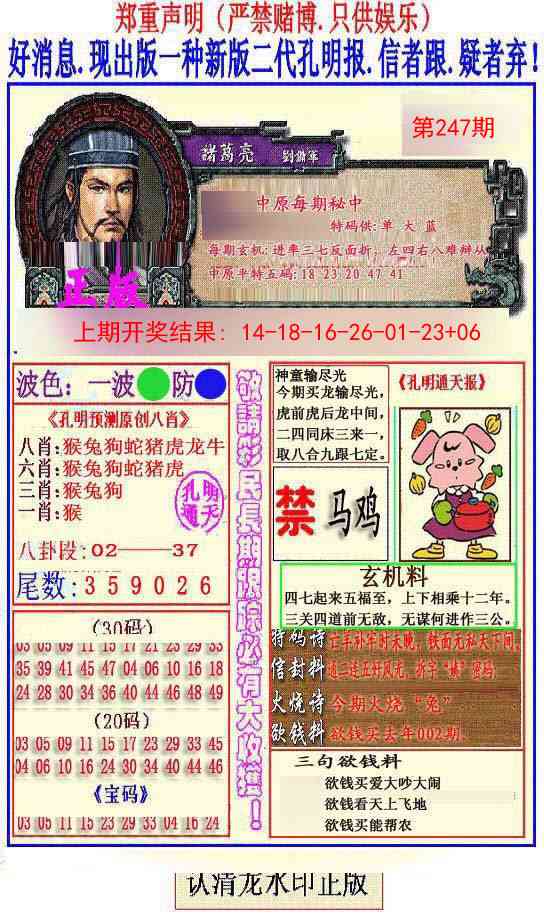 郑重声明（严禁赌博.只供娱乐）
好消息.现出版一种新版二代孔明报.信者跟.疑者弃!
第247期
諸萬亮
中原每期秘中
特码供:单 大 蓝
每期玄机:进率三七反面折，左四右八难辩从
中原平特五码:18 23 20 47 41
正版
上期开奖结果: 14-18-16-26-01-23+06
波色：一波 防
《孔明预测原创八肖》
八肖:猴兔狗蛇猪虎龙牛
六肖:猴兔狗蛇猪虎
三肖:猴兔狗
一肖:猴
孔明
通天
八卦段:02——37
尾数:359026
(30码)
03 05 09 11 15 17 21 23 29 33
35 39 41 45 47 04 06 10 16 18
24 28 30 34 36 40 44 46 48 49
(20码)
03 05 09 11 15 17 23 29 33 45
04 06 10 16 24 30 36 40 44 46
《宝码》
03 05 11 15 23 29 33 04 16 24
敬請彩民長期跟踪必有大收獲！
神童输尽光
今期买龙输尽光，
虎前虎后龙中间，
二四同床三来一，
取八合九跟七定。
《孔明通天报》
禁 马鸡
玄机料
四七起来五福至，上下相乘十二年。
三关四道前无敌，无谋何进作三公。
特码诗 亡羊补牢时未晚，铁面无私天下间
信封料
火烧诗 今期火烧“兔”
欲钱料 欲钱买去年002期.
三句欲钱料
欲钱买爱大吵大闹
欲钱看天上飞地
欲钱买能帮农
认清龙水印正版